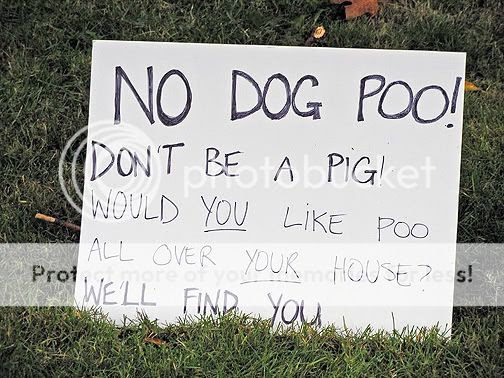 NO DOG POO!
DON'T BE A PIG!
WOULD YOU LIKE POO
ALL OVER YOUR HOUSE?
WE'LL FIND YOU
photobucket
Protect more of your memories for less!